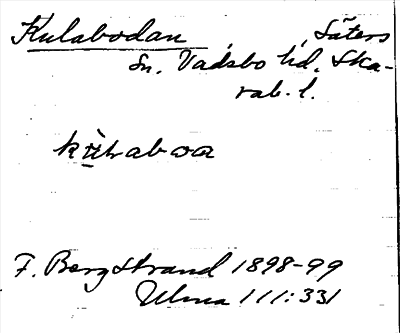 Kulabodan, Säters
Sn. Vadsbo hd. Ska-
rab. l.
F. Bergstrand 1898-99
Ulma 111:331